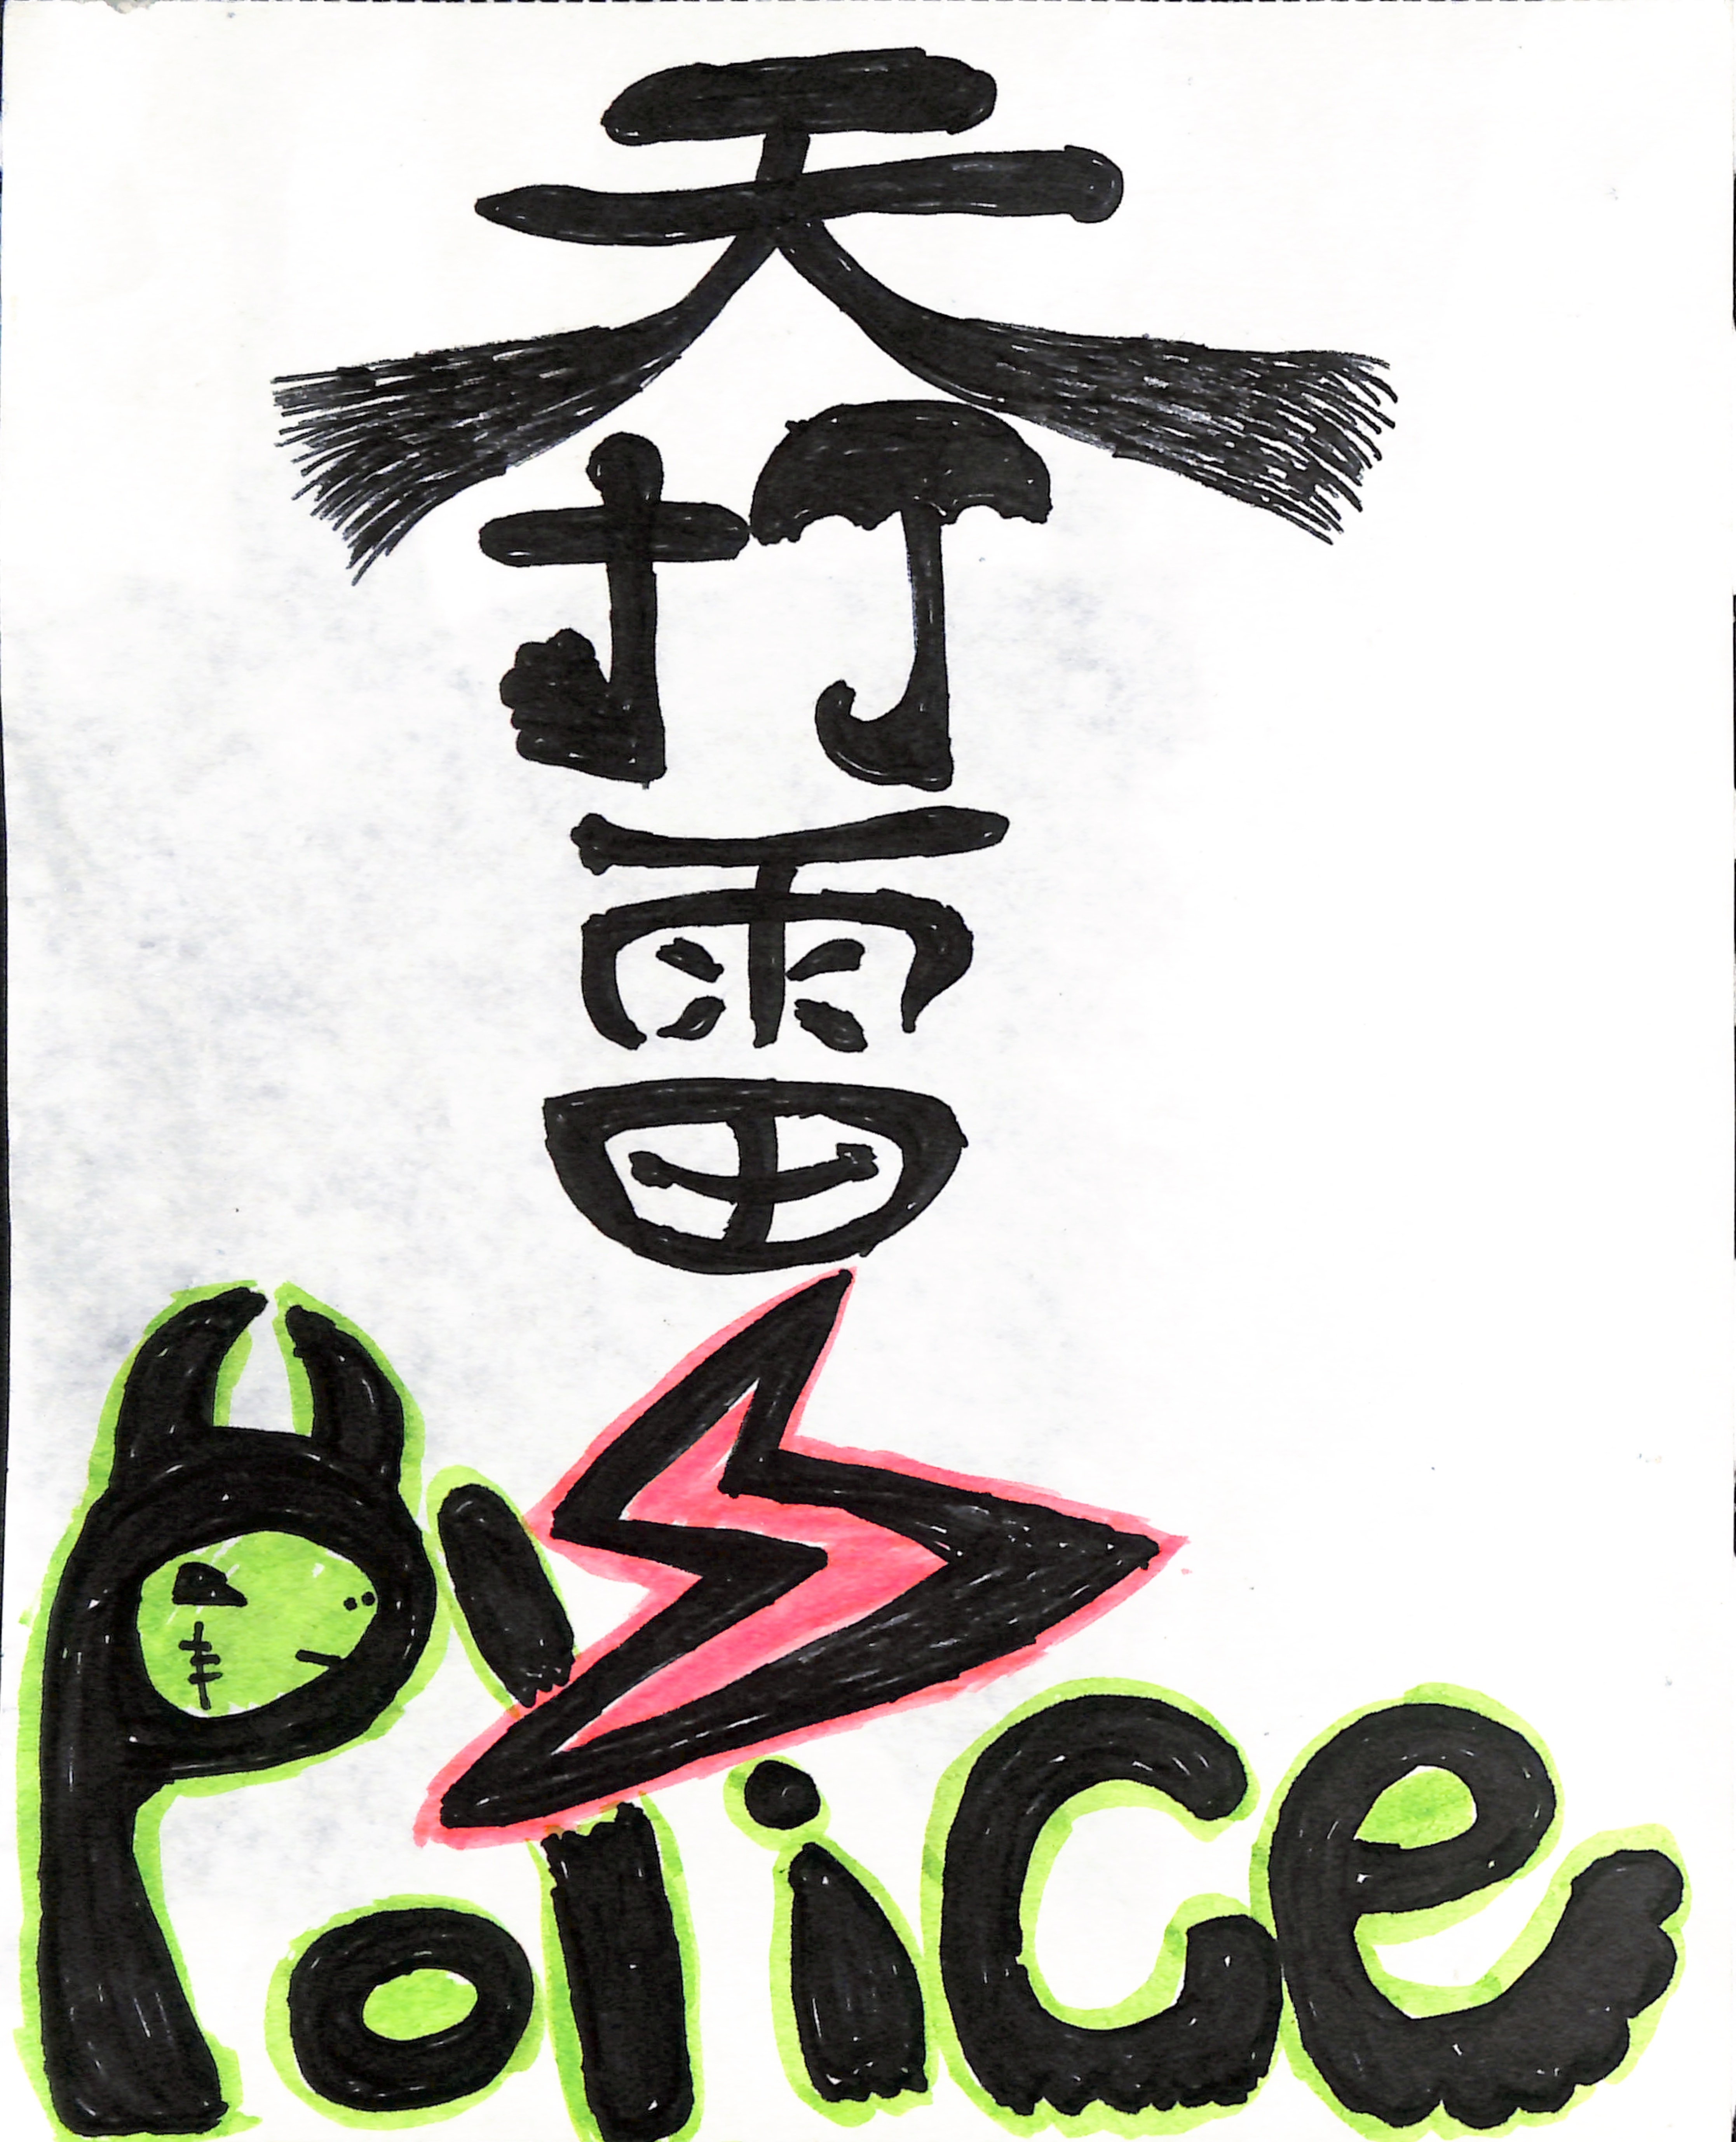 天
打
雷
Police